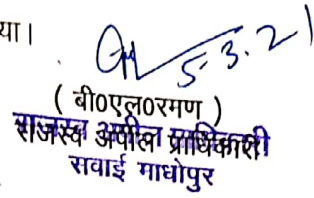 या।
5-3.21
( बी0एल0रमण )
राजस्व अपील प्राधिकारी
सवाई माधोपुर